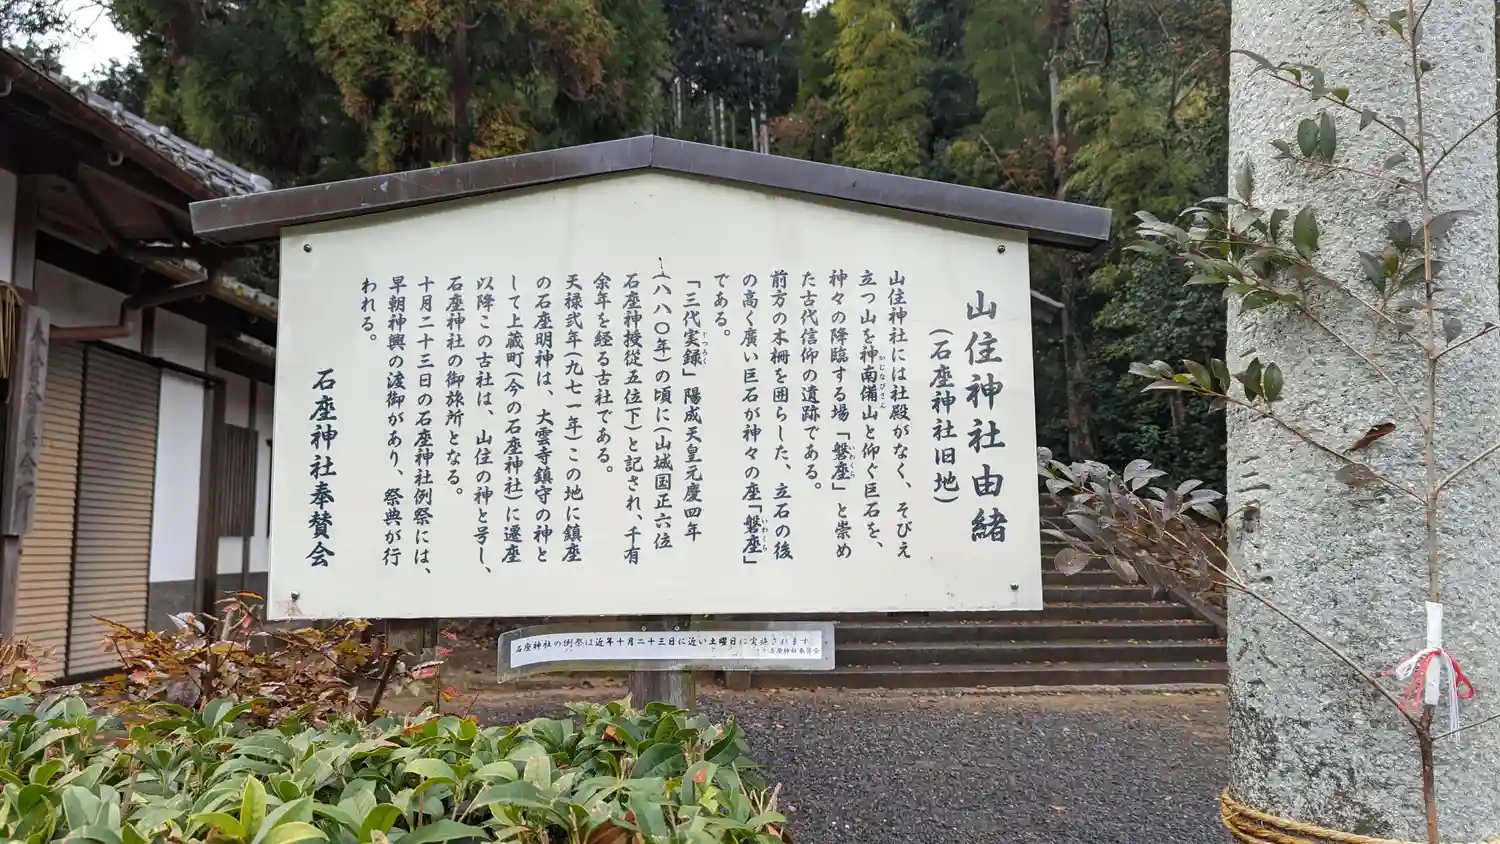 山住神社由緒
(石座神社旧地)
山住神社には社殿がなく、そびえ
立つ山を神南備山と仰ぐ巨石を、
神々の降臨する場「磐座」と崇め
た古代信仰の遺跡である。
前方の木柵を囲らした、立石の後
の高く廣い巨石が神々の座「磐座」
である。
「三代実録」陽成天皇元慶四年
(八八〇年)の頃に(山城国正六位
石座神授従五位下)と記され、千有
余年を経る古社である。
天禄弐年(九七一年)この地に鎮座
の石座明神は、大雲寺鎮守の神と
して上蔵町(今の石座神社)に遷座
以降この古社は、山住の神と号し、
石座神社の御旅所となる。
十月二十三日の石座神社例祭には、
早朝神輿の渡御があり、祭典が行
われる。
石座神社奉賛会
石座神社の例祭は近年十月二十三日に近い土曜日に実施されます。
石座神社奉賛会